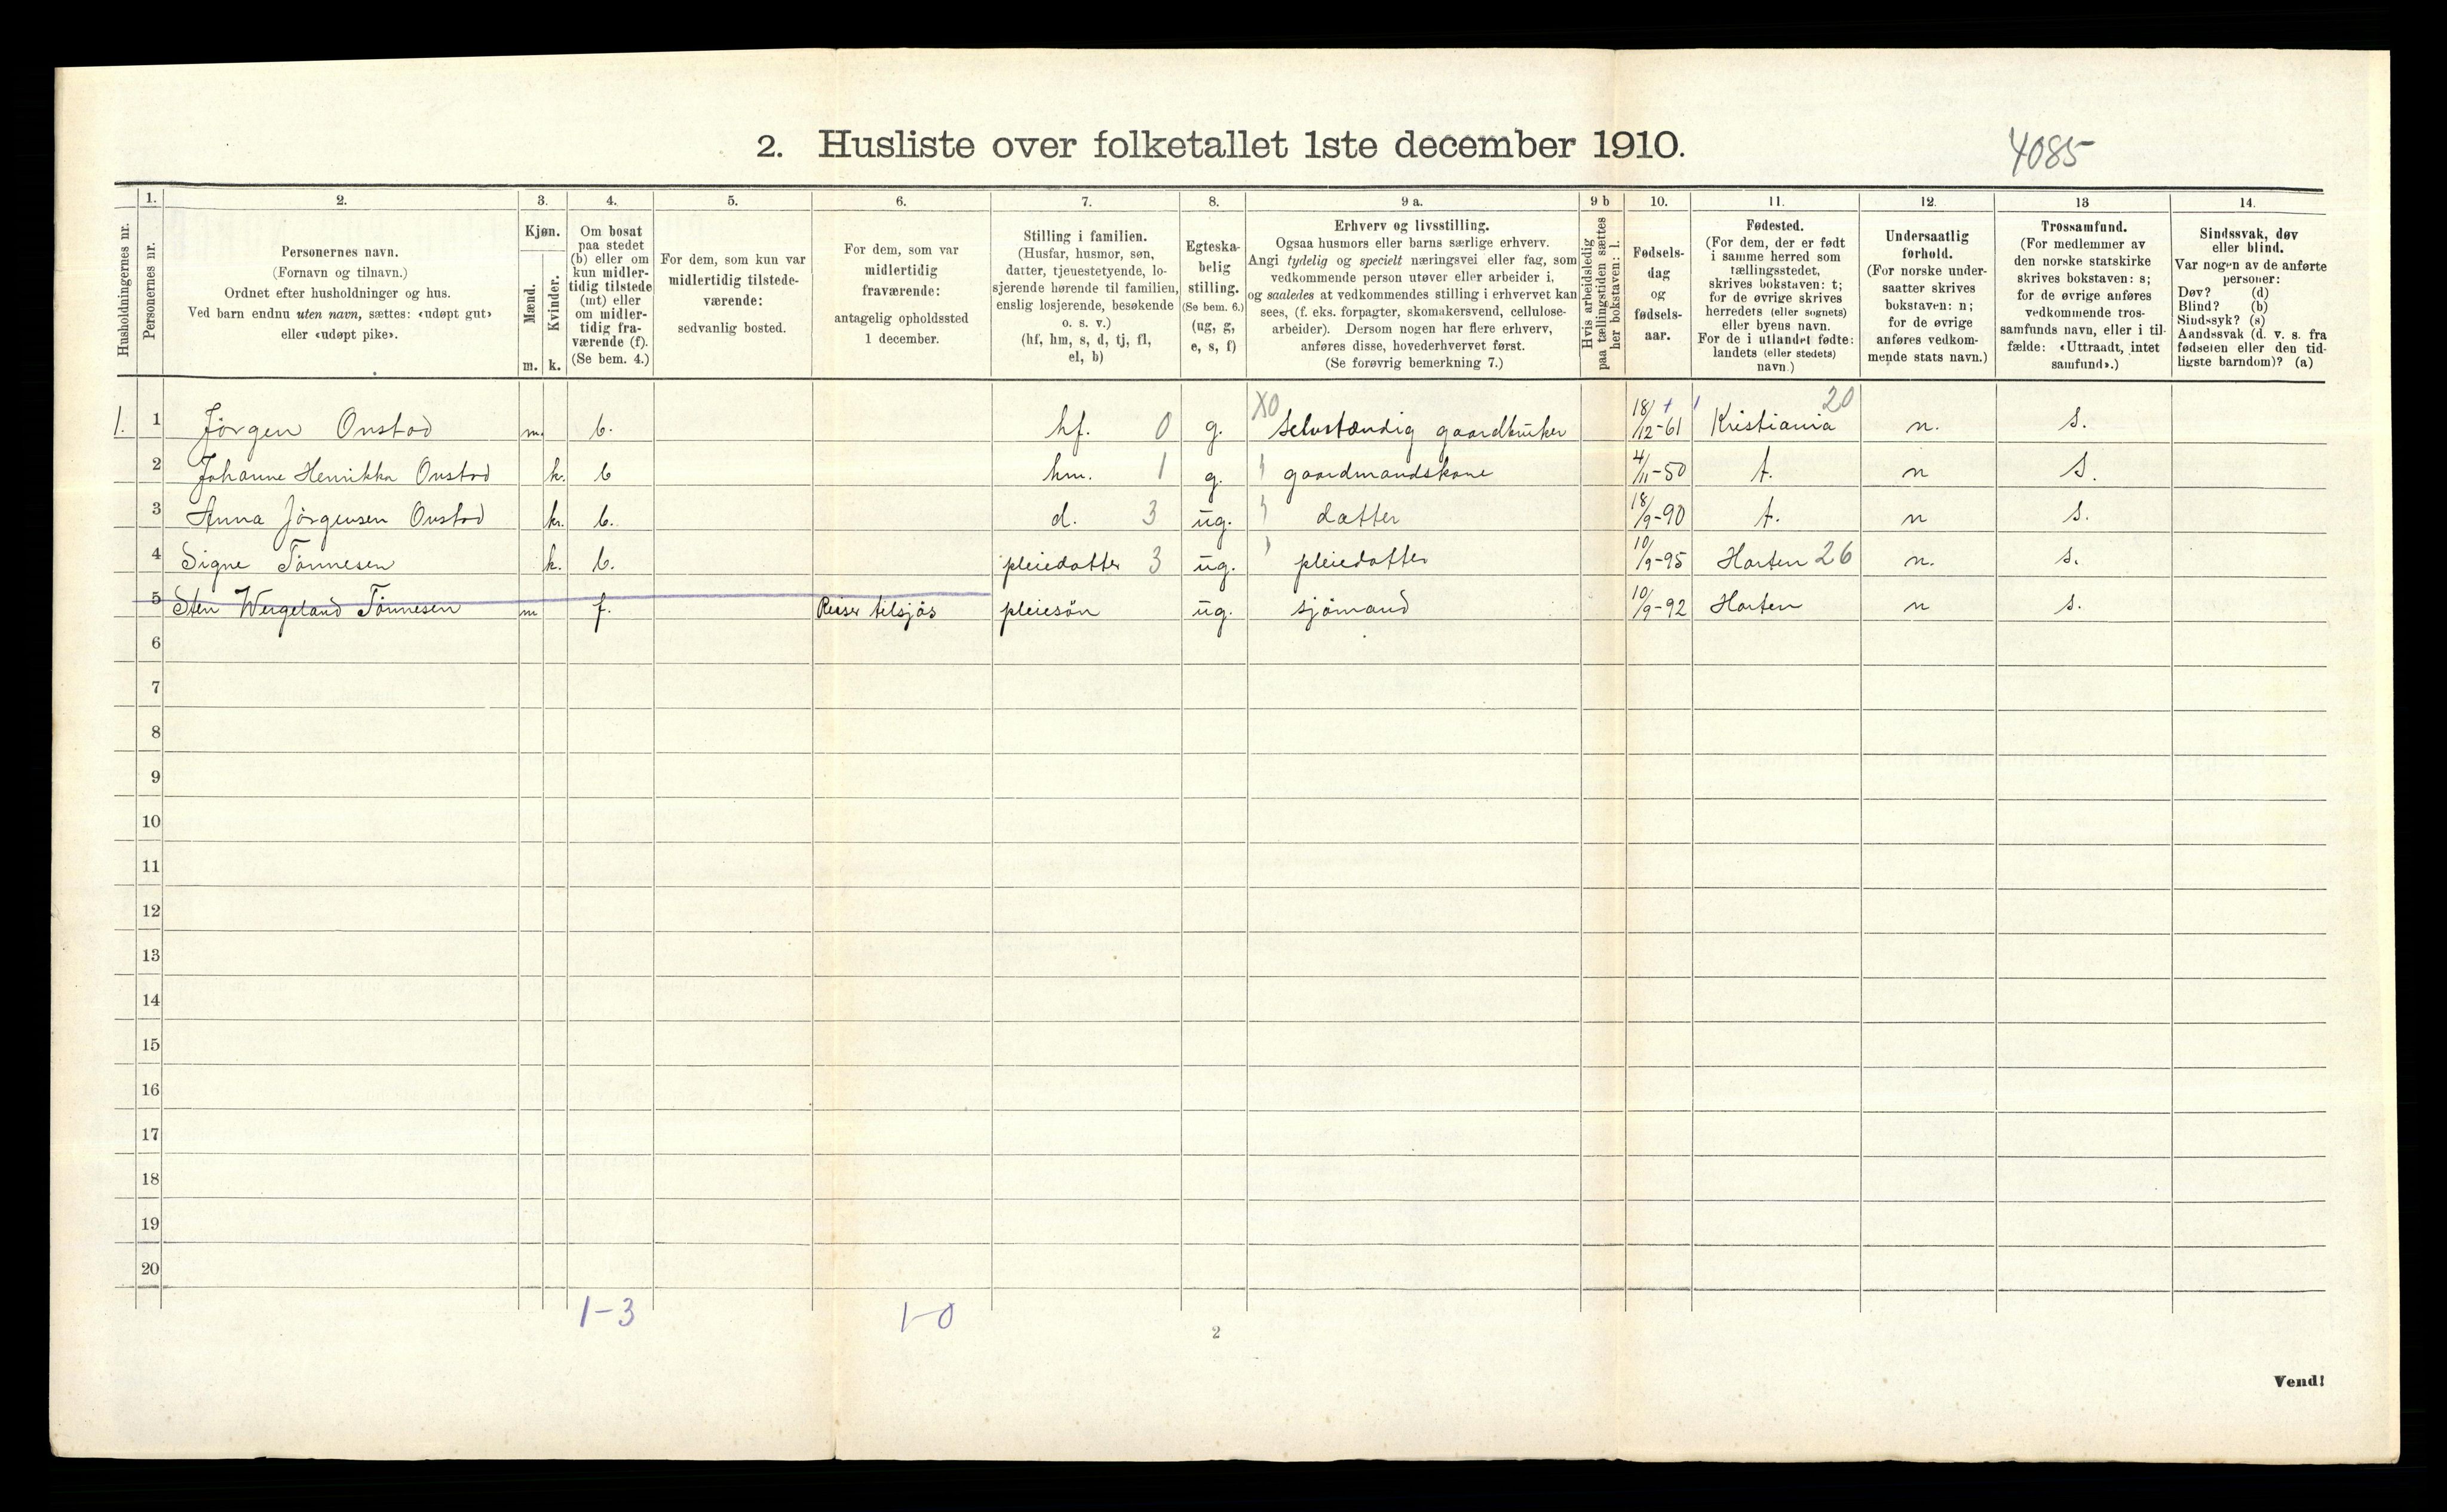 2. Husliste over folketallet 1ste december 1910.
4085
Husholdningernes nr.
1.
Personernes nr.
2.
Personernes navn.
(Fornavn og tilnavn.)
Ordnet efter husholdninger og hus.
Ved barn endnu uten navn, sættes: «udøpt gut»
eller «udøpt pike».
3.
Kjøn.
Mænd.
Kvinder.
m. k.
4.
Om bosat
paa stedet
(b) eller om
kun midler-
tidig tilstede
(mt) eller
om midler-
tidig fra-
værende (f).
(Se bem. 4.)
5.
For dem, som kun var
midlertidig tilstede-
værende:
sedvanlig bosted.
6.
For dem, som var
midlertidig
fraværende:
antagelig opholdssted
1 december.
7.
Stilling i familien.
(Husfar, husmor, søn,
datter, tjenestetyende, lo-
sjerende hørende til familien,
enslig losjerende, besøkende
o. s. v.)
(hf, hm, s, d, tj, fl,
el, b)
8.
Egteska-
belig
stilling.
(Se bem. 6.)
(ug, g,
e, s, f)
9 a.
Erhverv og livsstilling.
Ogsaa husmors eller barns særlige erhverv.
Angi tydelig og specielt næringsvei eller fag, som
vedkommende person utøver eller arbeider i,
og saaledes at vedkommendes stilling i erhvervet kan
sees, (f. eks. forpagter, skomakersvend, cellulose-
arbeider). Dersom nogen har flere erhverv,
anføres disse, hovederhvervet først.
(Se forøvrig bemerkning 7.)
9 b
Hvis arbeidsledig
paa tællingstiden sættes
her bokstaven: l.
10.
Fødsels-
dag
og
fødsels-
aar.
11.
Fødested.
(For dem, der er født
i samme herred som
tællingsstedet,
skrives bokstaven: t;
for de øvrige skrives
herredets (eller sognets)
eller byens navn.
For de i utlandet fødte:
landets (eller stedets)
navn.)
12.
Undersaatlig
forhold.
(For norske under-
saatter skrives
bokstaven: n;
for de øvrige
anføres vedkom-
mende stats navn.)
13
Trossamfund.
(For medlemmer av
den norske statskirke
skrives bokstaven: s;
for de øvrige anføres
vedkommende tros-
samfunds navn, eller i til-
fælde: «Uttraadt, intet
samfund».)
14.
Sindssvak, døv
eller blind.
Var nogen av de anførte
personer:
Døv? (d)
Blind? (b)
Sindssyk? (s)
Aandssvak (d. v. s. fra
fødselen eller den tid-
ligste barndom)? (a)
1. 1 Jörgen Onstad m. b. hf. 0 g. X0 Selvstændig gaardbruker 18/12-61 Kristiania 20 n. s.
2 Johanne Henrikka Onstad k. b hm. 1 g. gaardmandskone 4/11-50 t. n s.
3 Anna Jörgensen Onstad k. b. d. 3 ug. datter 18/9-90 t. n s.
4 Signe Tönnesen k. b. pleiedatter 3 ug. pleiedatter 10/9-95 Horten 26 n. s.
5 Sten Wergeland Tönnesen m f. Reiser tilsjös pleiesön ug. sjömand 10/9-92 Horten n s.
6
7
8
9
10
11
12
13
14
15
16
17
18
19
20
1-3 1-0
2
Vend!